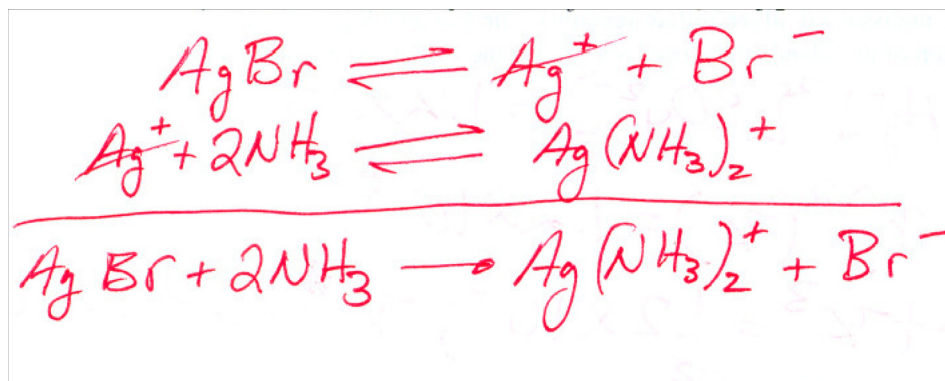 AgBr ⇌ Ag⁺ + Br⁻
Ag⁺ + 2NH₃ ⇌ Ag(NH₃)₂⁺
AgBr + 2NH₃ → Ag(NH₃)₂⁺ + Br⁻